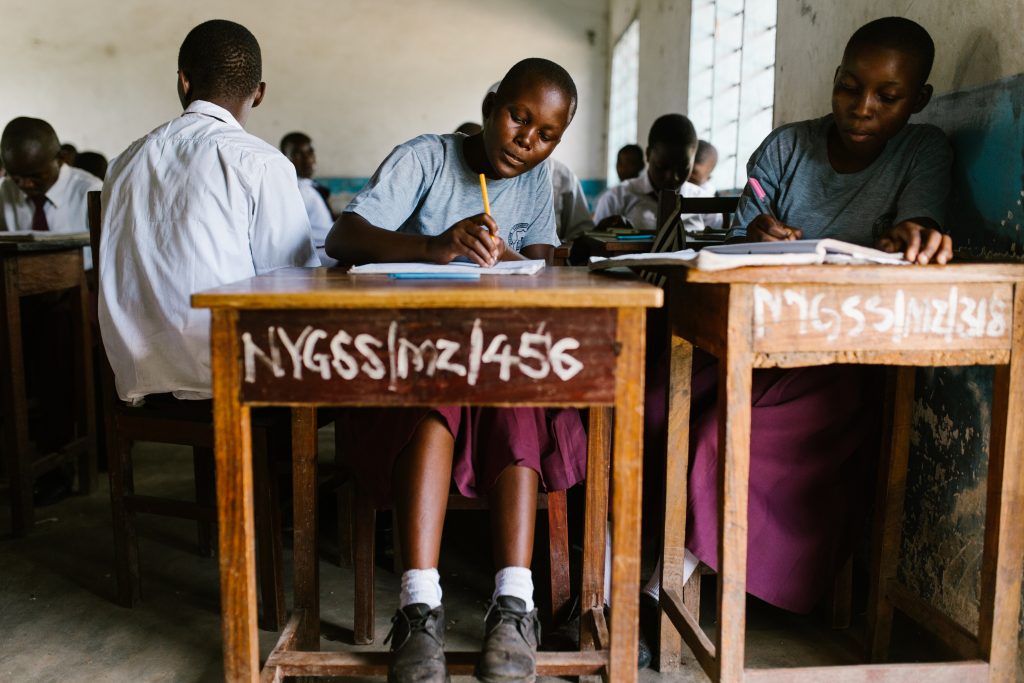 NYGSS/MZ/456
NYGSS/MZ/318